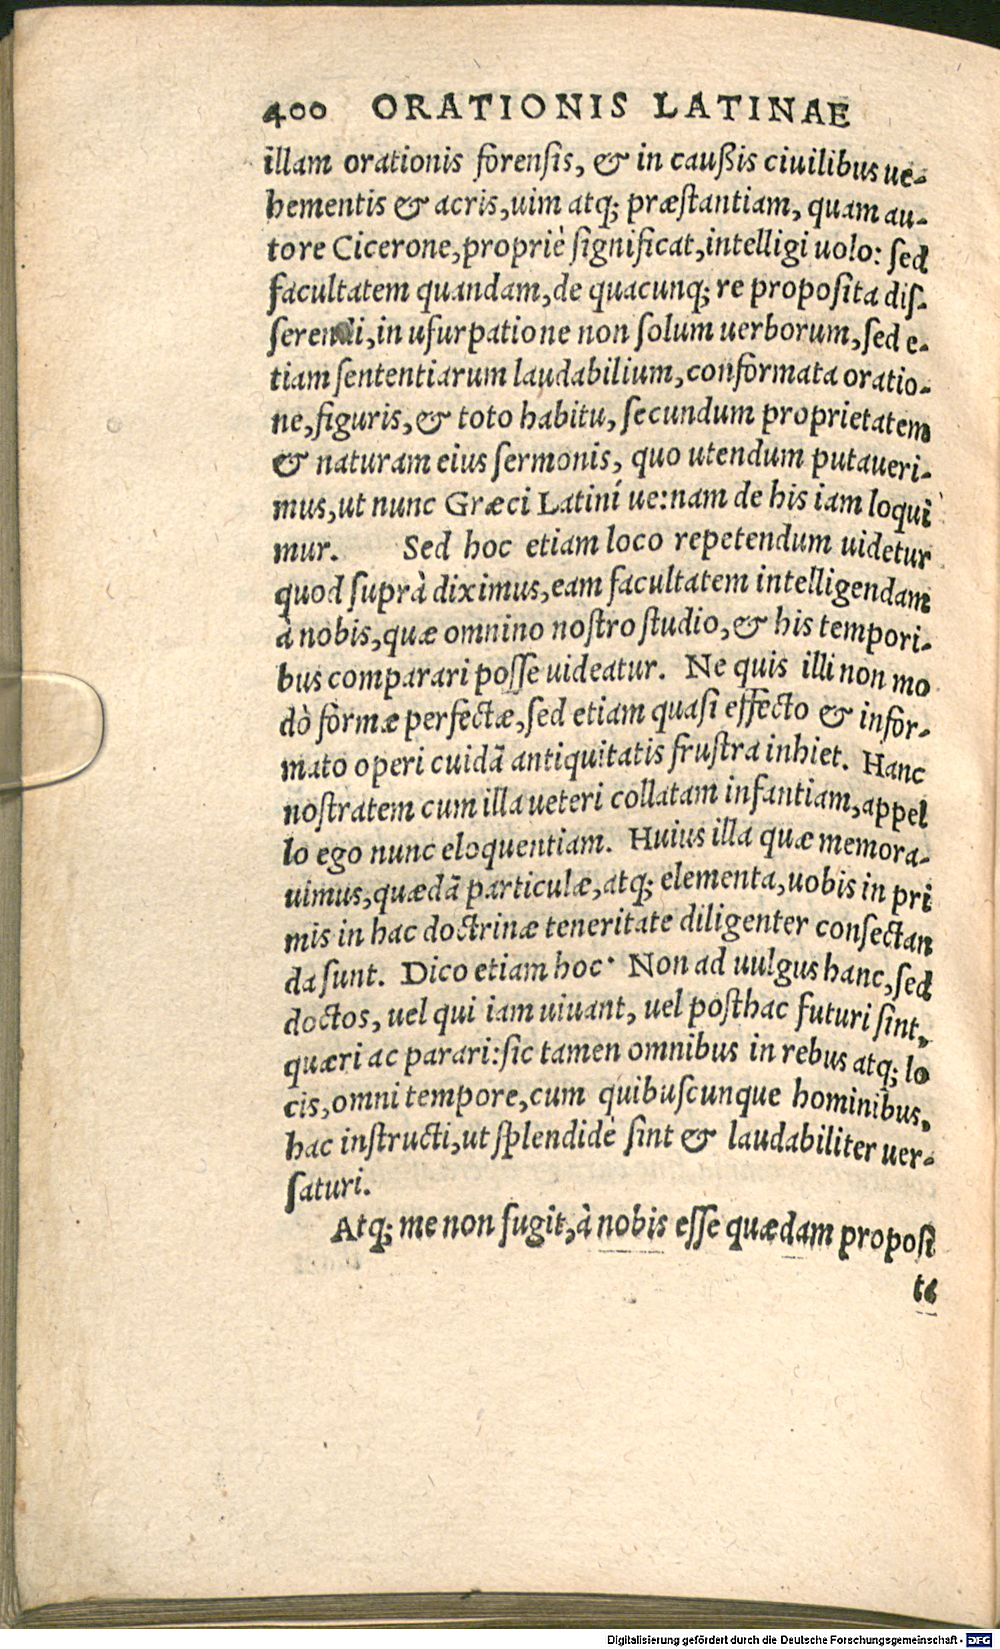 400 ORATIONIS LATINAE
illam orationis forensis, & in caußis ciuilibus ue-
hementis & acris, uim atq; præstantiam, quam au-
tore Cicerone, propriè significat, intelligi uolo: sed
facultatem quandam, de quacunq; re proposita dis-
serendi, in usurpatione non solum uerborum, sed e-
tiam sententiarum laudabilium, conformata oratio-
ne, figuris, & toto habitu, secundum proprietatem
& naturam eius sermonis, quo utendum putaueri-
mus, ut nunc Græci Latini ue: nam de his iam loqui
mur. Sed hoc etiam loco repetendum uidetur
quod suprà diximus, eam facultatem intelligendam
à nobis, quæ omnino nostro studio, & his tempori-
bus comparari posse uideatur. Ne quis illi non mo
dò formæ perfectæ, sed etiam quasi effecto & infor-
mato operi cuidã antiquitatis frustra inhiet. Hanc
nostratem cum illa ueteri collatam infantiam, appel
lo ego nunc eloquentiam. Huius illa quæ memora-
uimus, quædã particulæ, atq; elementa, uobis in pri
mis in hac doctrinæ teneritate diligenter consectan
da sunt. Dico etiam hoc. Non ad uulgus hanc, sed
doctos, uel qui iam uiuant, uel posthac futuri sint,
quæri ac parari: sic tamen omnibus in rebus atq; lo
cis, omni tempore, cum quibuscunque hominibus,
hac instructi, ut splendidè sint & laudabiliter uer-
saturi.
Atq; me non fugit, à nobis esse quædam proposi
ta
Digitalisierung gefördert durch die Deutsche Forschungsgemeinschaft - DFG